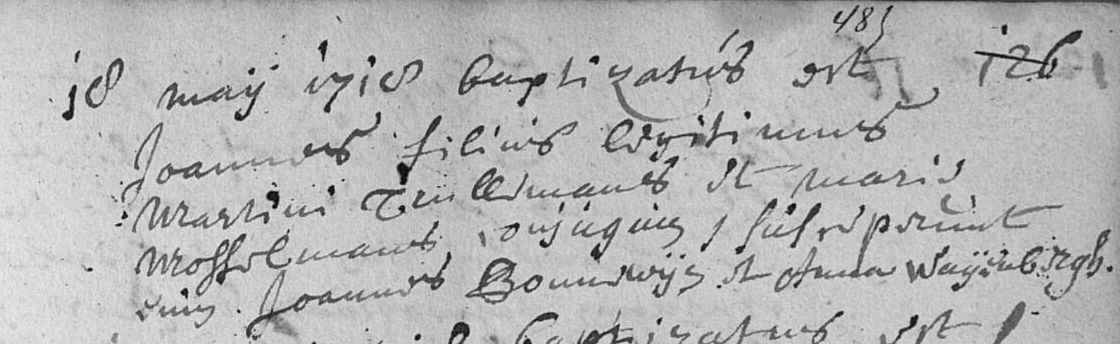 483 126
18 maij 1718 baptizatus est
Joannes filius legitimus
Martini Trullemans et marie
Mosselmans conjugum, susceperunt
eum Joannes Bonnewijn et Anna Waijenbergh.
baptizatus est